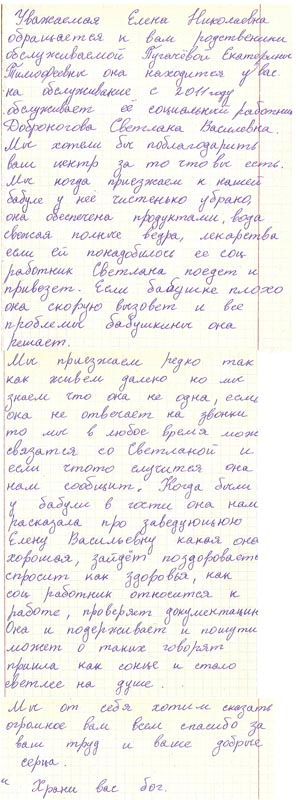 Уважаемая Елена Николаевна
обращается и вам родственики
обслуживаемой Пугачёвой Екатерины
Тимофеевны она находится у вас
на обслуживание с 2011 году
обслуживает её социальный работник
Доброногова Светлана Василевна.
Мы хотели бы поблагодарить
ваш центр за то что вы есть.
Мы когда приезжаем к нашей
бабуле у неё чистенько убрано,
она обеспечена продуктами, вода
свежая полные ведра, лекарства
если ей понадобилось ее соц
работник Светлана поедет и
привезет. Если бабушке плохо
она скорую вызовет и все
проблемы бабушкины она
решает.
Мы приезжаем редко так
как живем далеко но мы
знаем что она не одна, если
она не отвечает на звонки
то мы в любое время мож
связатся со Светланой и
если чтото случится она
нам сообщит. Когда были
у бабули в гости она нам
расказала про заведующюю
Елену Васильевну какая она
хорошая, зайдёт поздоровается
спросит как здоровья, как
соц работник относится к
работе, проверяет документацию
Она и подерживает и пошутит
может о таких говорят
пришла как сонце и стало
светлее на душе.
Мы от себя хотим сказать
огромное вам всем спасибо за
ваш труд и ваше добрые
серца.
" Храни вас бог.